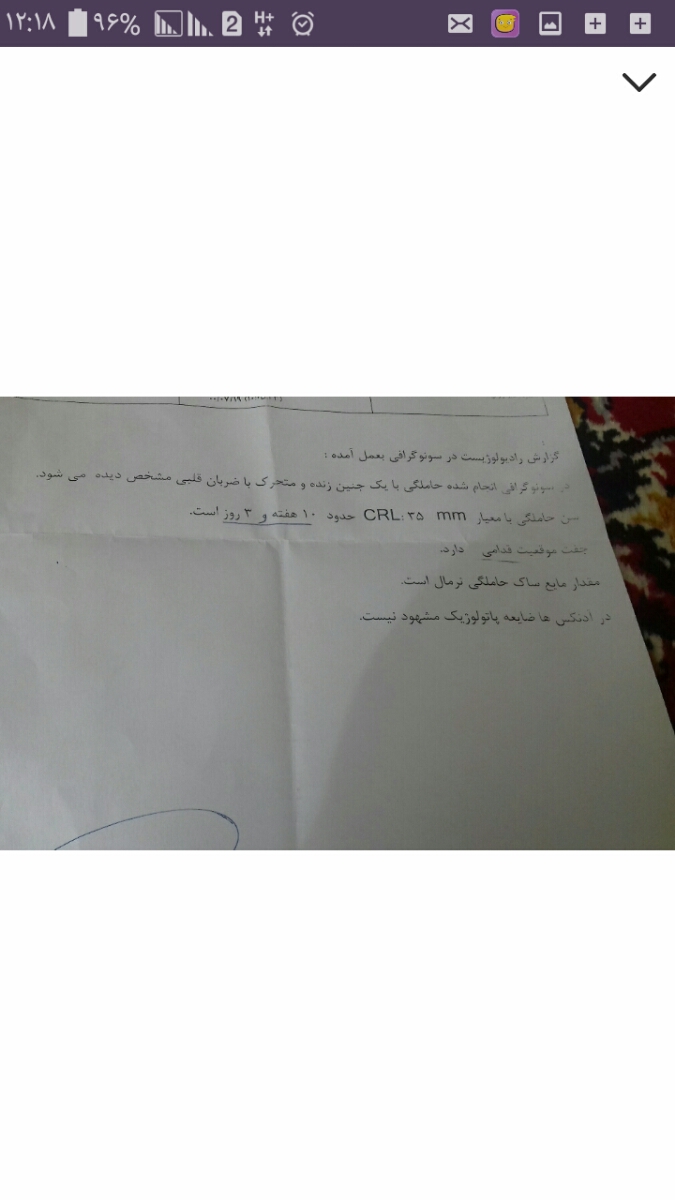 ۱۲:۱۸ ۹۶% 2 H+
گزارش رادیولوژیست در سونوگرافی بعمل آمده :
در سونوگرافی انجام شده حاملگی با یک جنین زنده و متحرک با ضربان قلبی مشخص دیده می شود.
سن حاملگی با معیار CRL: ۳۵ mm حدود ۱۰ هفته و ۳ روز است.
جفت موقعیت قدامی دارد.
مقدار مایع ساک حاملگی نرمال است.
در آدنکس ها ضایعه پاتولوژیک مشهود نیست.